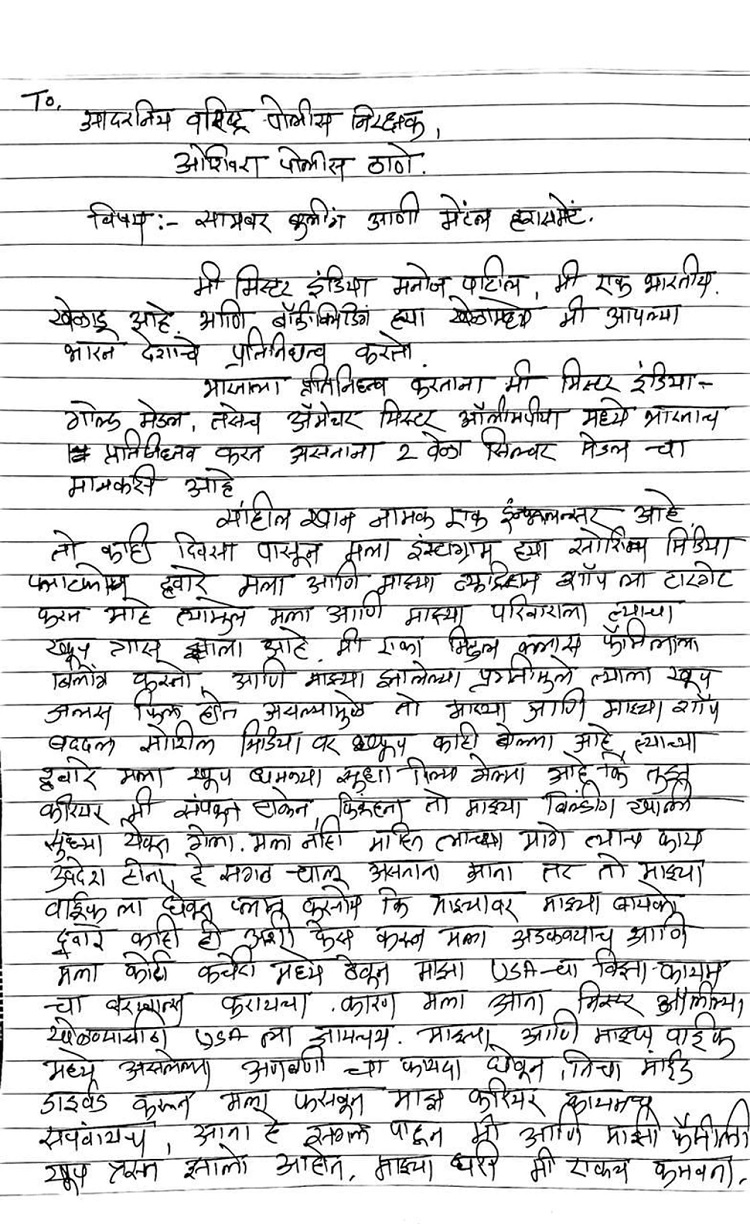 To,
आदरनिय वरिष्ठ पोलीस निरक्षक,
ओशिवरा पोलीस ठाणे.
विषय :- सायबर बुलींग आणी मेंटल हरासमेंट.
मी मिस्टर इंडिया मनोज पाटील, मी एक भारतीय.
खेळाडू आहे. आणि बॉडीबिल्डिंग ह्या खेळामध्ये मी आपल्या
भारत देशाचे प्रतिनिधत्व करतो.
भारताला प्रतिनिधत्व करताना मी मिस्टर इंडिया -
गोल्ड मेडल, तसेच अ‍ॅमेचर मिस्टर ऑलीमपीया मध्ये भारताच
प्रतिनिधत्व करत असताना 2 वेळा सिल्वर मेडल चा
मानकरी आहे
साहील खान नामक एक इंन्फ्लुएन्सर आहे.
तो काही दिवसा पासून मला इंस्टाग्राम ह्या सोशिल मिडिया
प्लाटफोम द्वारे मला आणि माझ्या न्यूट्रिशन शॉप ला टारगेट
करत आहे त्यामुळे मला आणि माझ्या परिवाराला त्याचा
खूप त्रास झाला आहे. मी एका मिडल क्लास फॅमिलीला
बिलाँग करतो, आणि माझ्या झालेल्या प्रगतीमुले त्याला खूप
जलस फिल होत असल्यामुळे तो माझ्या आणि माझ्या शॉप
बददल सोशील मिडिया वर खूप काही बोल्ला आहे त्याच्या
द्वारे मला खूप धमक्या सुध्दा दिल्या गेल्या आहे कि तुझ
करियर मी संपवून टाकेन, इतकंच ना तो माझ्या बिल्डींग खाली
सुध्दा येऊन गेला. मला नाही माहित त्याच्या मागे त्याच काय
उद्देश होता, हे सगळ चालू असताना आता तर तो माझ्या
वाईफ ला घेऊन प्लान करतोय कि माझ्यावर माझ्या बायको
द्वारे काही ही अशी केस करून मला अडकवायच आणि
मला कोर्ट कचेरी मध्ये ठेवून माझा USA-चा विझा कायम
चा बरखास्त करायचा. कारण मला आता मिस्टर ऑलंम्पिया
खेळण्यासाठी USA ला जायचय. माझ्या आणि माझ्या वाईफ
मध्ये असलेल्या अणबणी चा फायदा घेवून, तिचा माईंड
डाइवर्ड करून मला फसवून माझ करियर कायमच
संपवायच, आता हे सगल पाहून मी आणि माझी फॅमीली
खूप त्रस्त झालो आहोत. माझ्या घरी मी एकच कमवता.